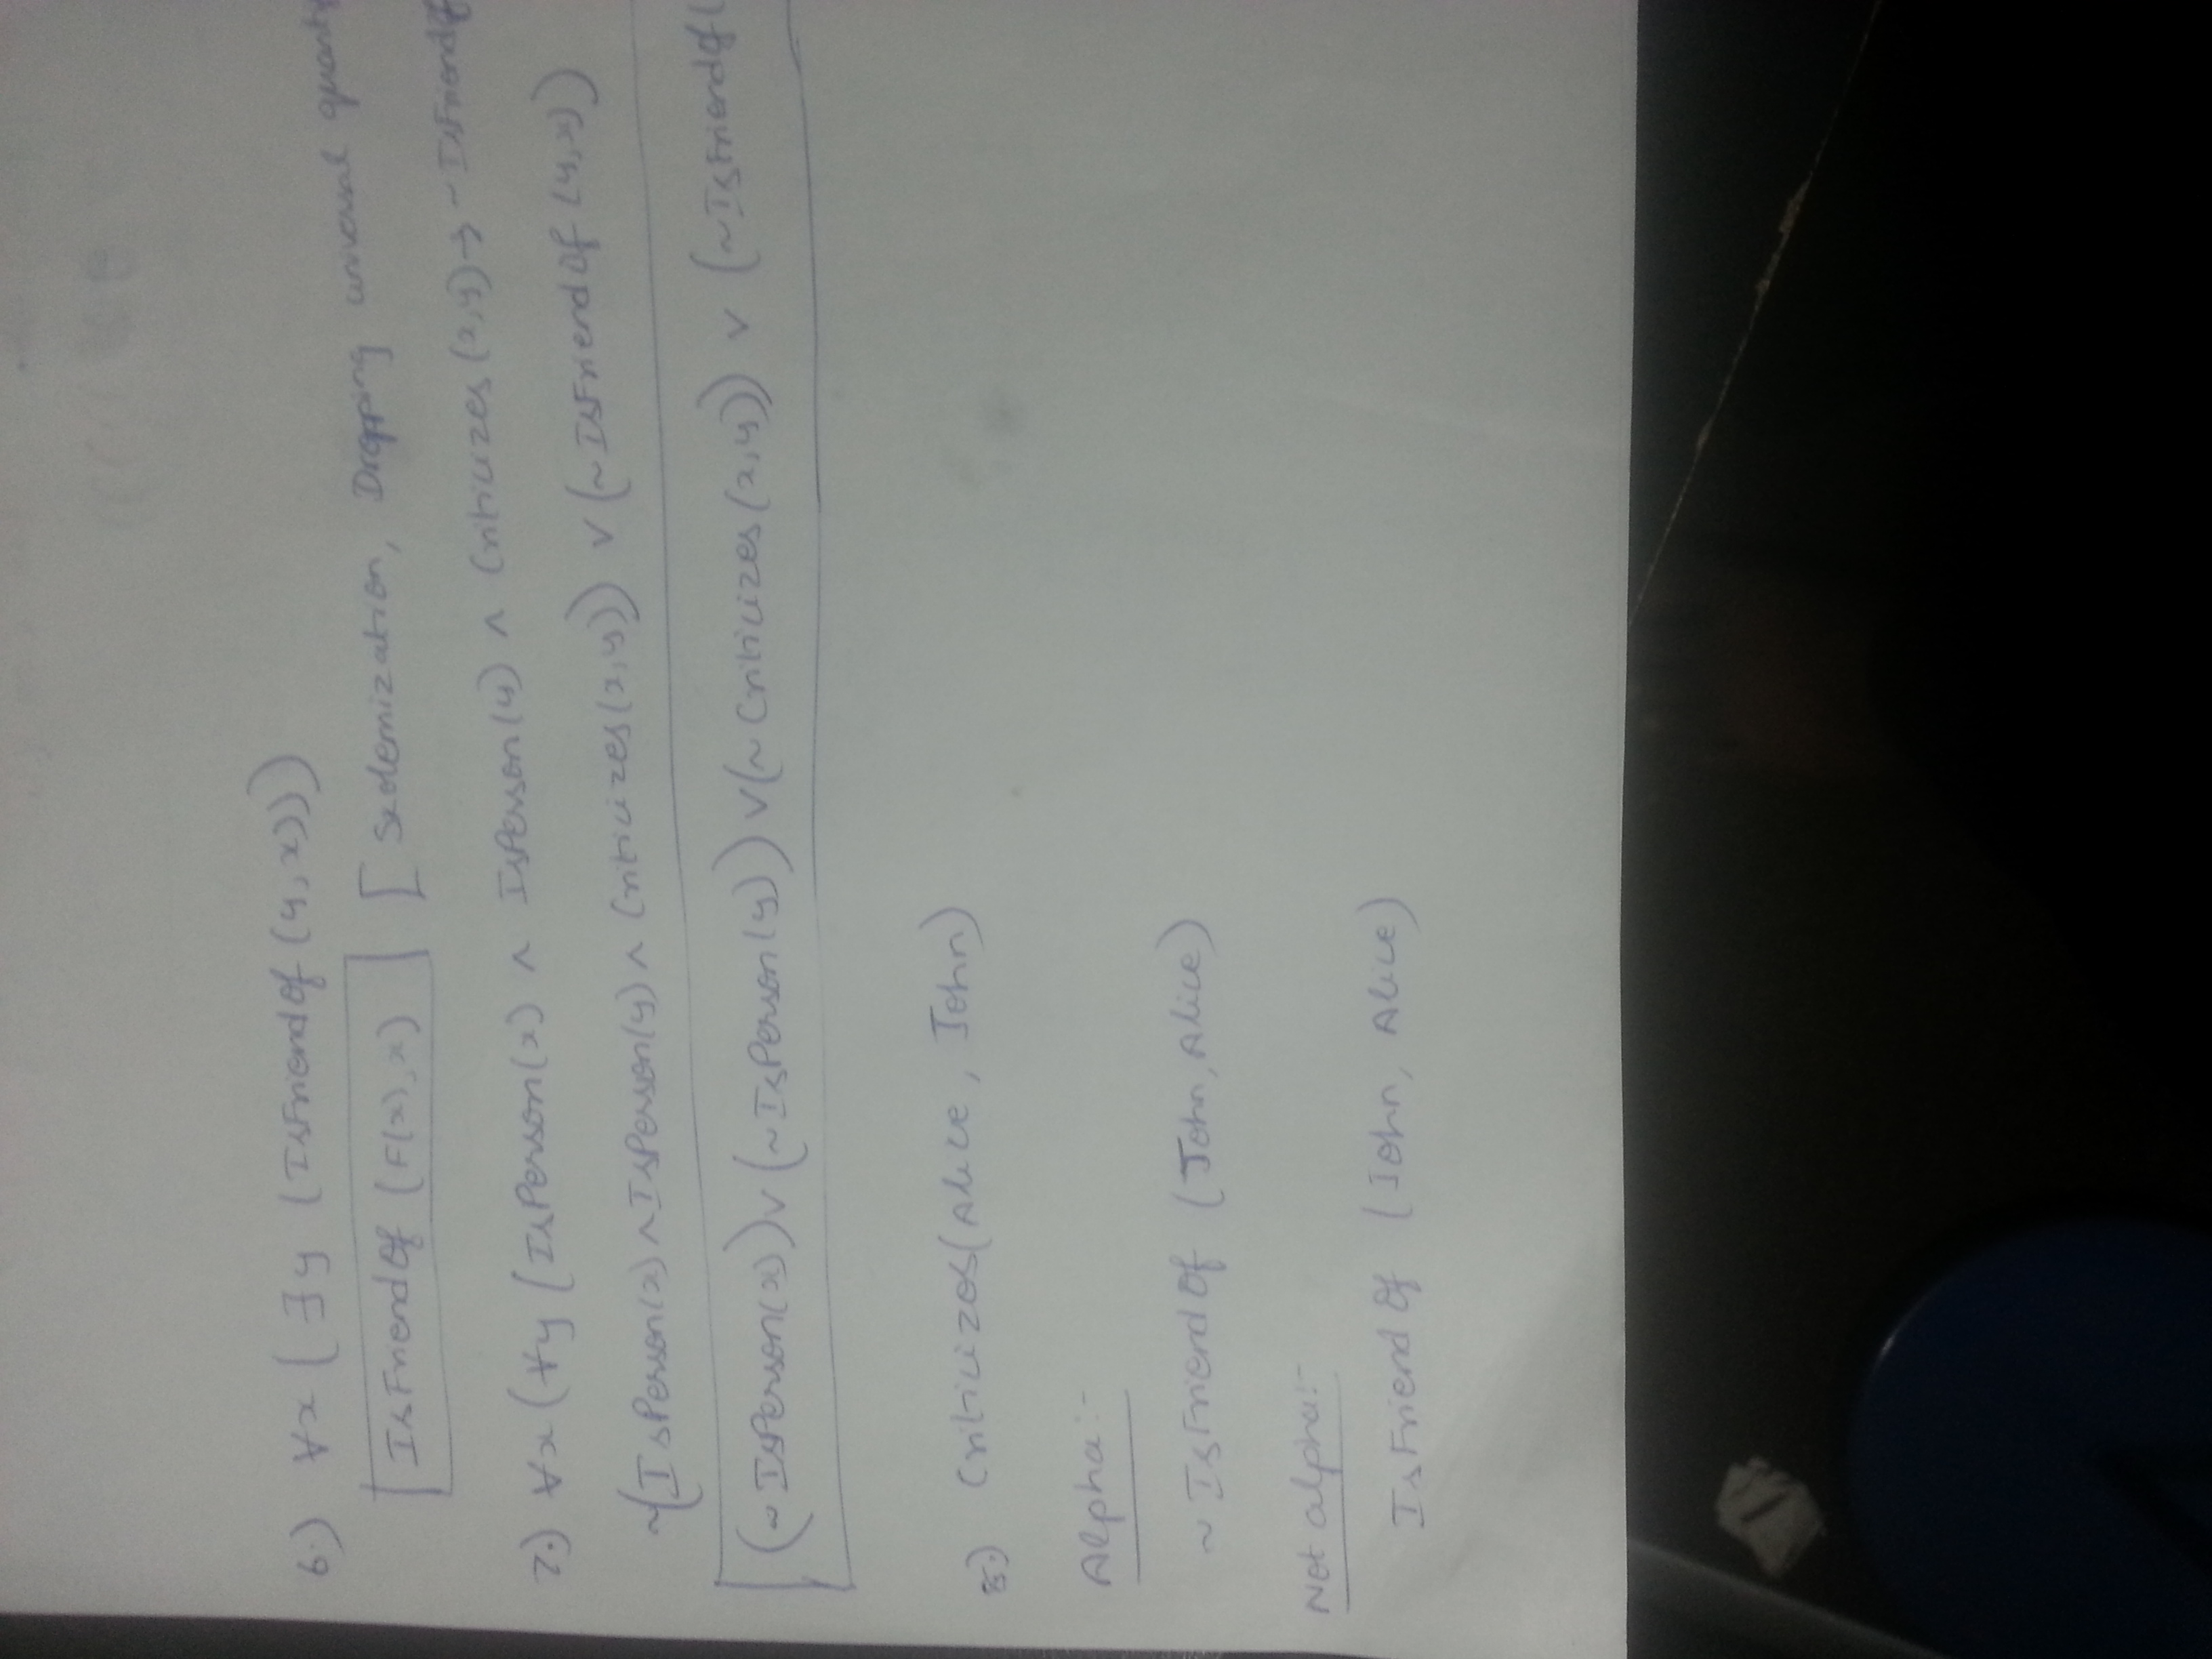 6.) ∀x (∃y (IsFriendOf (y, x)))
IsFriendOf (F(x), x) [Skolemization, Dropping universal
7.) ∀x (∀y (IsPerson(x) ∧ IsPerson(y) ∧ Criticizes(x,y) → ~IsFriendOf
~(IsPerson(x) ∧ IsPerson(y) ∧ Criticizes(x,y)) ∨ (~IsFriendOf (y,x))
(~IsPerson(x)) ∨ (~IsPerson(y)) ∨ (~Criticizes(x,y)) ∨ (~IsFriendOf(
8.) Criticizes(Alice, John)
Alpha:-
~IsFriendOf (John, Alice)
Not alpha:-
IsFriendOf (John, Alice)